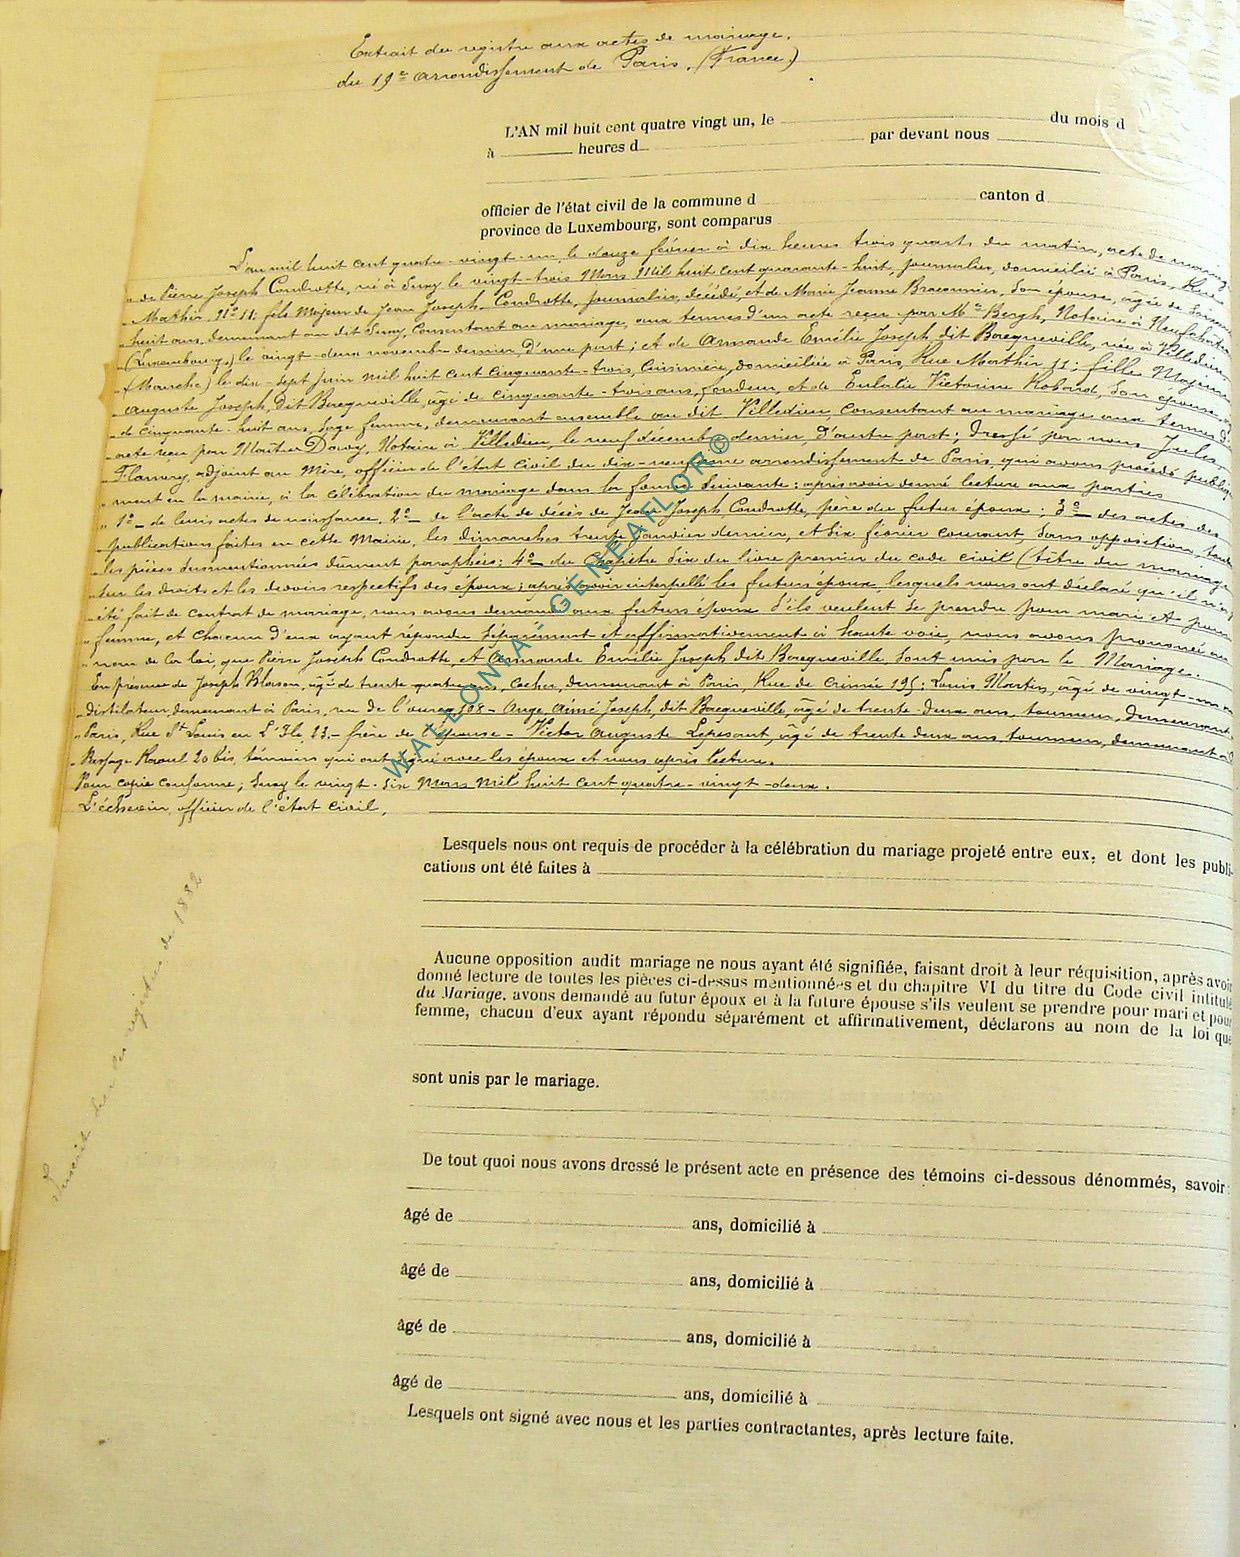 Extrait du registre aux actes de mariage,
du 19e arrondissement de Paris. (France)
L'AN mil huit cent quatre vingt un, le du mois d
à heures d par devant nous
officier de l'état civil de la commune d canton d
province de Luxembourg, sont comparus
L'an mil huit cent quatre-vingt-un, le douze février à dix heures trois quarts du matin, acte de mariage
de Pierre Joseph Condrotte, né à Suxy le vingt-trois Mars Mil huit cent quarante-huit, journalier, domicilié à Paris, Rue
Mathis N° 11: fils Majeur de Jean Joseph Condrotte, Journalier, décédé, et de Marie Jeanne Braconnier, Son épouse, âgée de soixante
huit ans, demeurant au dit Suxy, Consentant au mariage, aux termes d'un acte reçu par Me Bergh, Notaire à Neufchâteau
(Luxembourg) le vingt-deux novembre dernier d'une part; et de Armande Emélie Joseph dit Bacqueville, née à Villedieu
(Manche) le dix-sept juin mil huit cent cinquante-trois, Cuisinière, domiciliée à Paris, Rue Mathis 11; fille Majeure
Auguste Joseph, dit Bacqueville, âgé de cinquante-trois ans, fondeur, et de Eulalie Victoire Son épouse
de cinquante-huit ans, Sage femme, demeurant ensemble au dit Villedieu Consentant au mariage aux termes d'
acte reçu par Maître Notaire à Villedieu, le neuf décembre dernier, D'autre part; Dressé par nous Jules,
adjoint au Mère, officier de l'état civil du dix-neuvième arrondissement de Paris, qui avons procédé publique
ment en la mairie, à la célébration du mariage dans la forme suivante: après avoir donné lecture aux parties
1°- de leurs actes de naissance, 2°- de l'acte de décès de Jean Joseph Condrotte, père du futur époux; 3°- des actes des
publications faites en cette Mairie, les dimanches trente Janvier dernier, et Six février courant, Sans opposition, toutes
les pièces susmentionnées dûment paraphées; 4°- du Chapitre Six du livre premier du code civil (titre du mariage
sur les droits et les devoirs respectifs des époux; après avoir interpellé les futurs époux, lesquels nous ont déclaré qu'il n'a
été fait de contrat de mariage, nous avons demandé aux futurs époux S'ils veulent Se prendre pour mari et pour
femme, et chacun d'eux ayant répondu Séparément et affirmativement à haute voix, nous avons prononcé au
nom de la loi, que Pierre Joseph Condrotte, et Armande Emélie Joseph dit Bacqueville, Sont unis par le Mariage.
En présence de Joseph Blaison, âgé de trente-quatre ans, Cocher, demeurant à Paris, Rue de Crimée 195; Louis Martin, âgé de vingt-un a
distilateur demeurant à Paris, rue de l'ourcq 108 - Ange Aimé Joseph, dit Bacqueville, âgé de trente-deux ans, tourneur, demeurant
Paris, Rue St Louis en L'Ile 23.- frère de l'épouse - Victor Auguste âgé de trente deux ans, tourneur, demeurant
Passage Raoul 20 bis, témoins qui ont signé avec les époux et nous après lecture.
Pour copie conforme; Suxy le vingt-six Mars Mil huit cent quatre-vingt-deux.
L'échevin, officier de l'état civil,
Inscrit dans les registres de 1882
Lesquels nous ont requis de procéder à la célébration du mariage projeté entre eux, et dont les publi-
cations ont été faites à
Aucune opposition audit mariage ne nous ayant été signifiée, faisant droit à leur réquisition, après avoir
donné lecture de toutes les pièces ci-dessus mentionnées et du chapitre VI du titre du Code civil intitulé
du Mariage, avons demandé au futur époux et à la future épouse s'ils veulent se prendre pour mari et pour
femme, chacun d'eux ayant répondu séparément et affirmativement, déclarons au nom de la loi que
sont unis par le mariage.
De tout quoi nous avons dressé le présent acte en présence des témoins ci-dessous dénommés, savoir:
âgé de ans, domicilié à
âgé de ans, domicilié à
âgé de ans, domicilié à
âgé de ans, domicilié à
Lesquels ont signé avec nous et les parties contractantes, après lecture faite.
WALLONIA - GENEAFLOR©